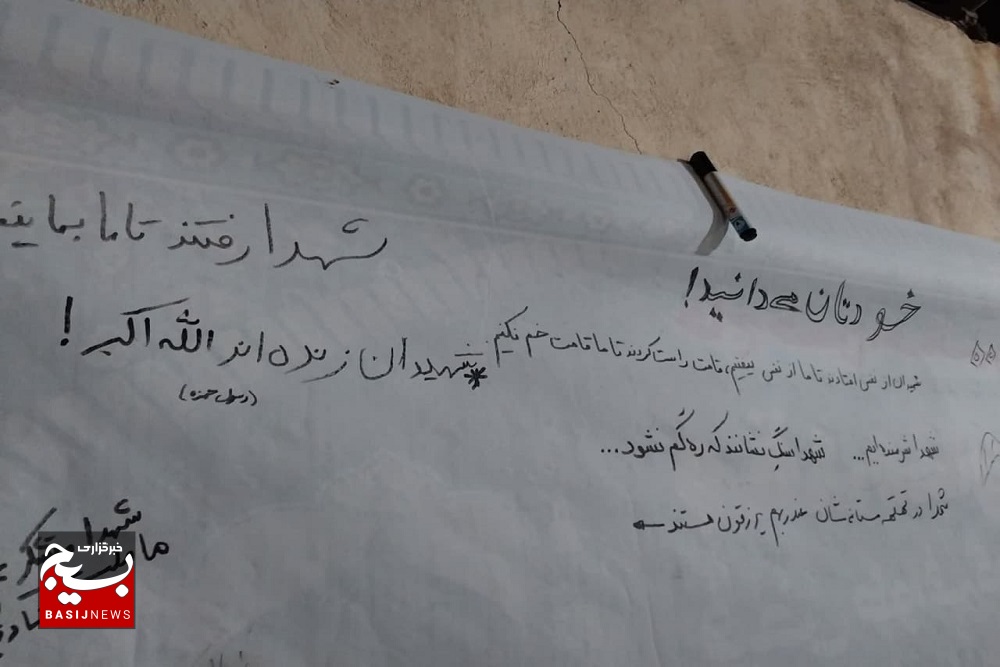 شهدا رفتند تا ما بمانیم
خودتان می‌دانید!
شهیدان از نفس افتادند تا ما از نفس نیفتیم، قامت راست کردند تا ما قامت خم نکنیم
* شهیدان زنده اند الله اکبر!
(رسول حمزه)
شهدا شرمنده ایم... شهدا سنگ نشانند که ره گم نشود...
شهدا در قهقهه مستانه شان عند ربهم یرزقون هستند
شهدا
ما
خبرگزاری
بسیج
BASIJNEWS